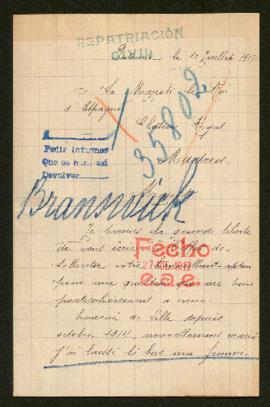 REPATRIACIÓN
CIVIL
le 10 Juillet 191
Sa Majesté le Roi
d'Espagne
Château Royal
Madrid
35802
Pedir informes
Que se hall así
Devolver
Branswick
Je prends la grande liberté
de vous écrire
solliciter votre
pour une question qui me tient
particulièrement à cœur
Fecho
27 JUL 1917
e.a.e.
Evacué de Lille depuis
octobre 1914, nouvellement marié
j'ai laissé là bas ma femme